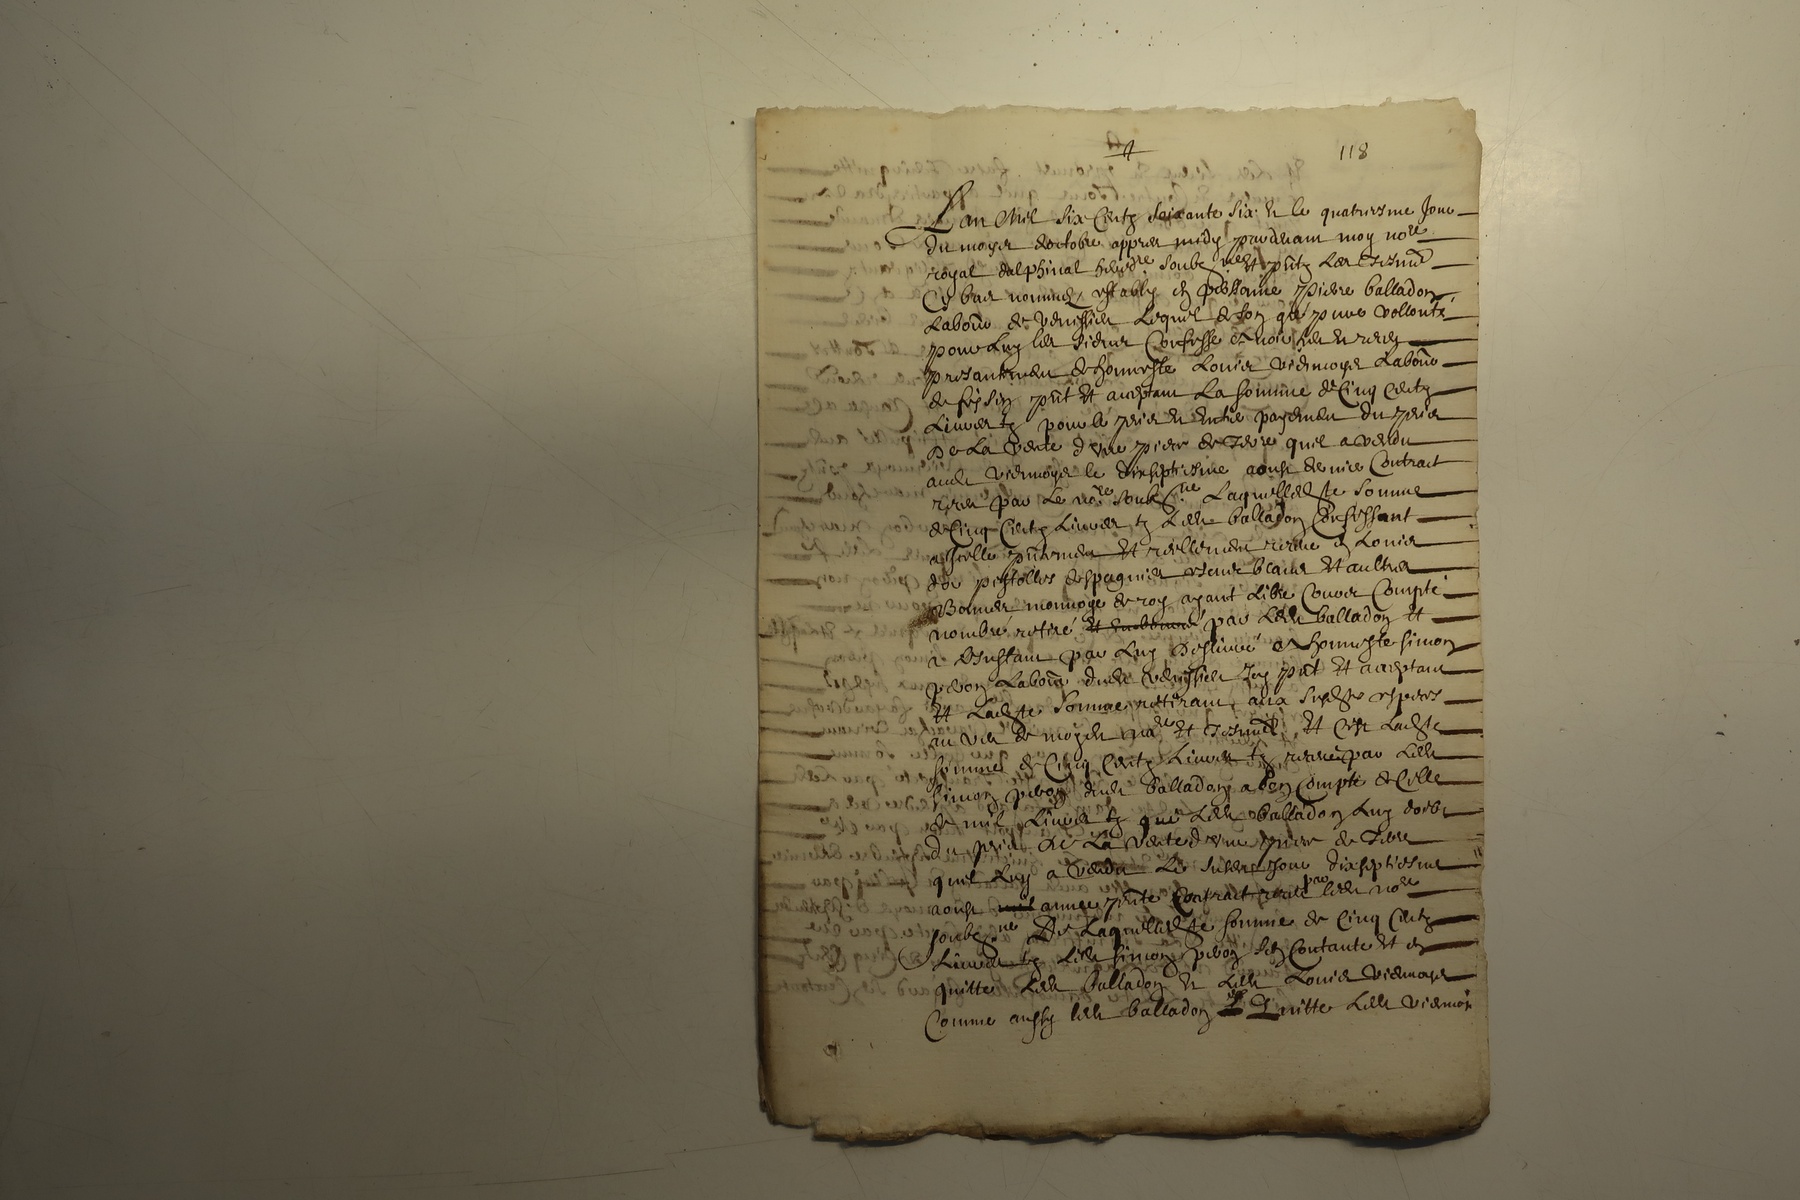 118
Lan Mil six Centz soixante six et le quatriesme Jour
du moys doctobre appres midy pardevant moy nore
royal dalphinal heredre soubzne et pntz les tesmt
Cy bas nommes estably en personne piere balladon
Labour de venissieu Lequel de son gré pure vollonté
pour Luy les siens Confesse avoir heu et receu
presantemen de honneste Louis viemoys Labour
de feysin pnt et aceptant La somme de Cinq Centz
Livres tz pour le prix et entie payement du prix
De La vente dune piece de terre quil a vendu
audt viermoys le dixseptiesme aoust dernier Contract
receu par Le nore soubzne Laquelledte somme
de Cinq Centz Livres tz Ledt balladon Confessant
a Icelle pntemen et reellement receue en Louis
dor pistolles despagnies escus blancs et aultres
Bonnes monnoye de roy ayant Libre Cours Compté
nombré retiré par Ledt balladon et
a Linstant par Luy deslivré a honneste simon
peron Labour dudt venissieu Icy pnt et aceptant
et Ladte somme retirant aux susdtes especes
au veu de moydt nore et tesmt et Cest Ladte
somme de Cinq Centz Livres tz receue par Ledt
simon peron dudt balladon a bon Compte de Celle
de mil Livres tz que Ledt balladon Luy doibt
du prix de La vente dune piece de terre
quil Luy a vendu Le susdt Jour dixseptiesme
aoust annee pnte Contract receu par ledt nore
soubzne De Laquelledte somme de Cinq Centz
Livres tz Ledt simon peron sen Contante et en
quitte Ledt balladon et Ledt Louis viermoys
Comme aussy ledt balladon quitte Ledt viermoys